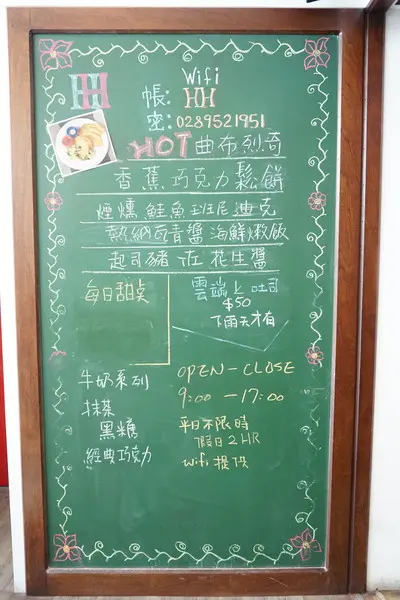 HH
Wifi
帳: HH
密: 0289521951
HOT 曲布列奇
香蕉巧克力鬆餅
煙燻鮭魚班尼迪克
熱納瓦青醬海鮮燉飯
起司豬佐花生醬
每日甜點
雲端上吐司
$50
下雨天才有
牛奶系列
抹茶
黑糖
經典巧克力
OPEN - CLOSE
9:00 - 17:00
平日不限時
假日2HR
Wifi 提供